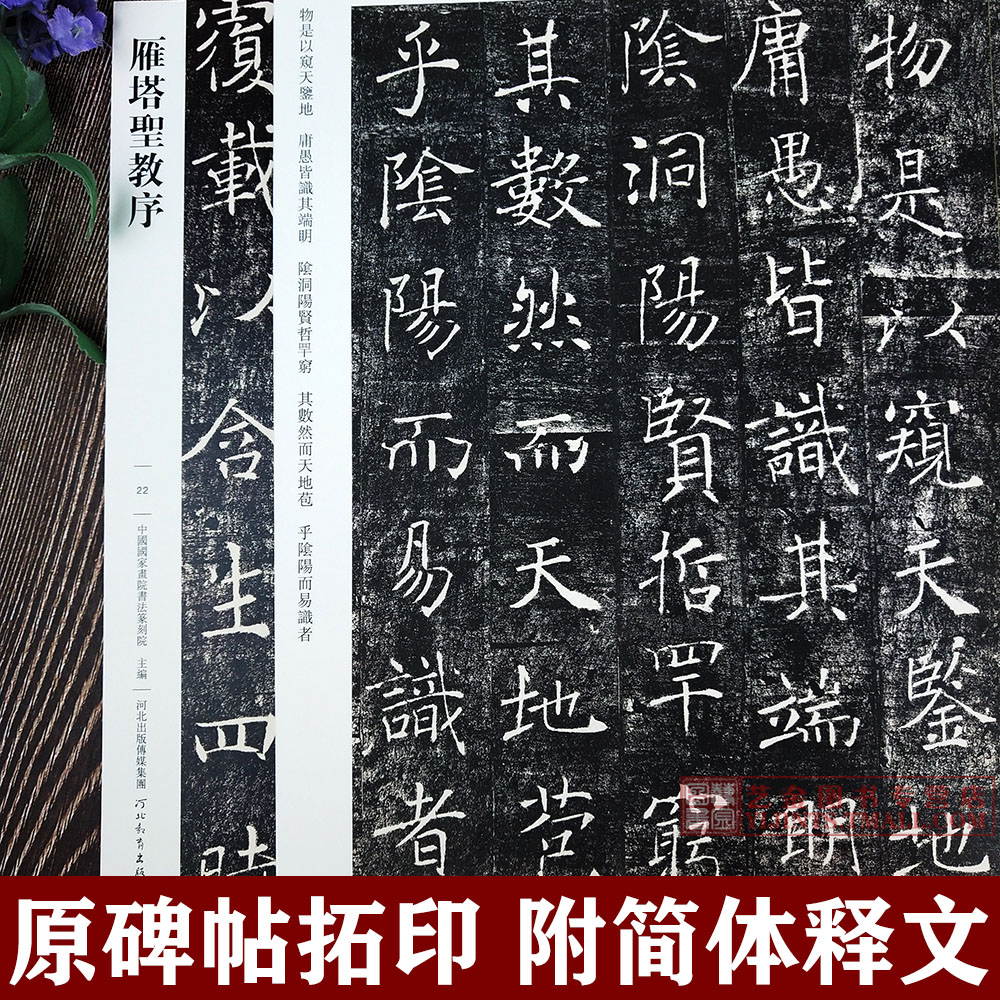 雁塔聖教序
22
中國國家畫院書法篆刻院 主編
河北出版傳媒集團
河北教育出版
覆載以含生四時
物是以窺天鑒地 庸愚皆識其端眀 陰洞陽賢哲罕窮 其數然而天地苞 乎陰陽而易識者
物是以窺天鑒地
庸愚皆識其端眀
陰洞陽賢哲罕窮
其數然而天地苞
乎陰陽而易識者
艺金图书专营店
原碑帖拓印 附简体释文